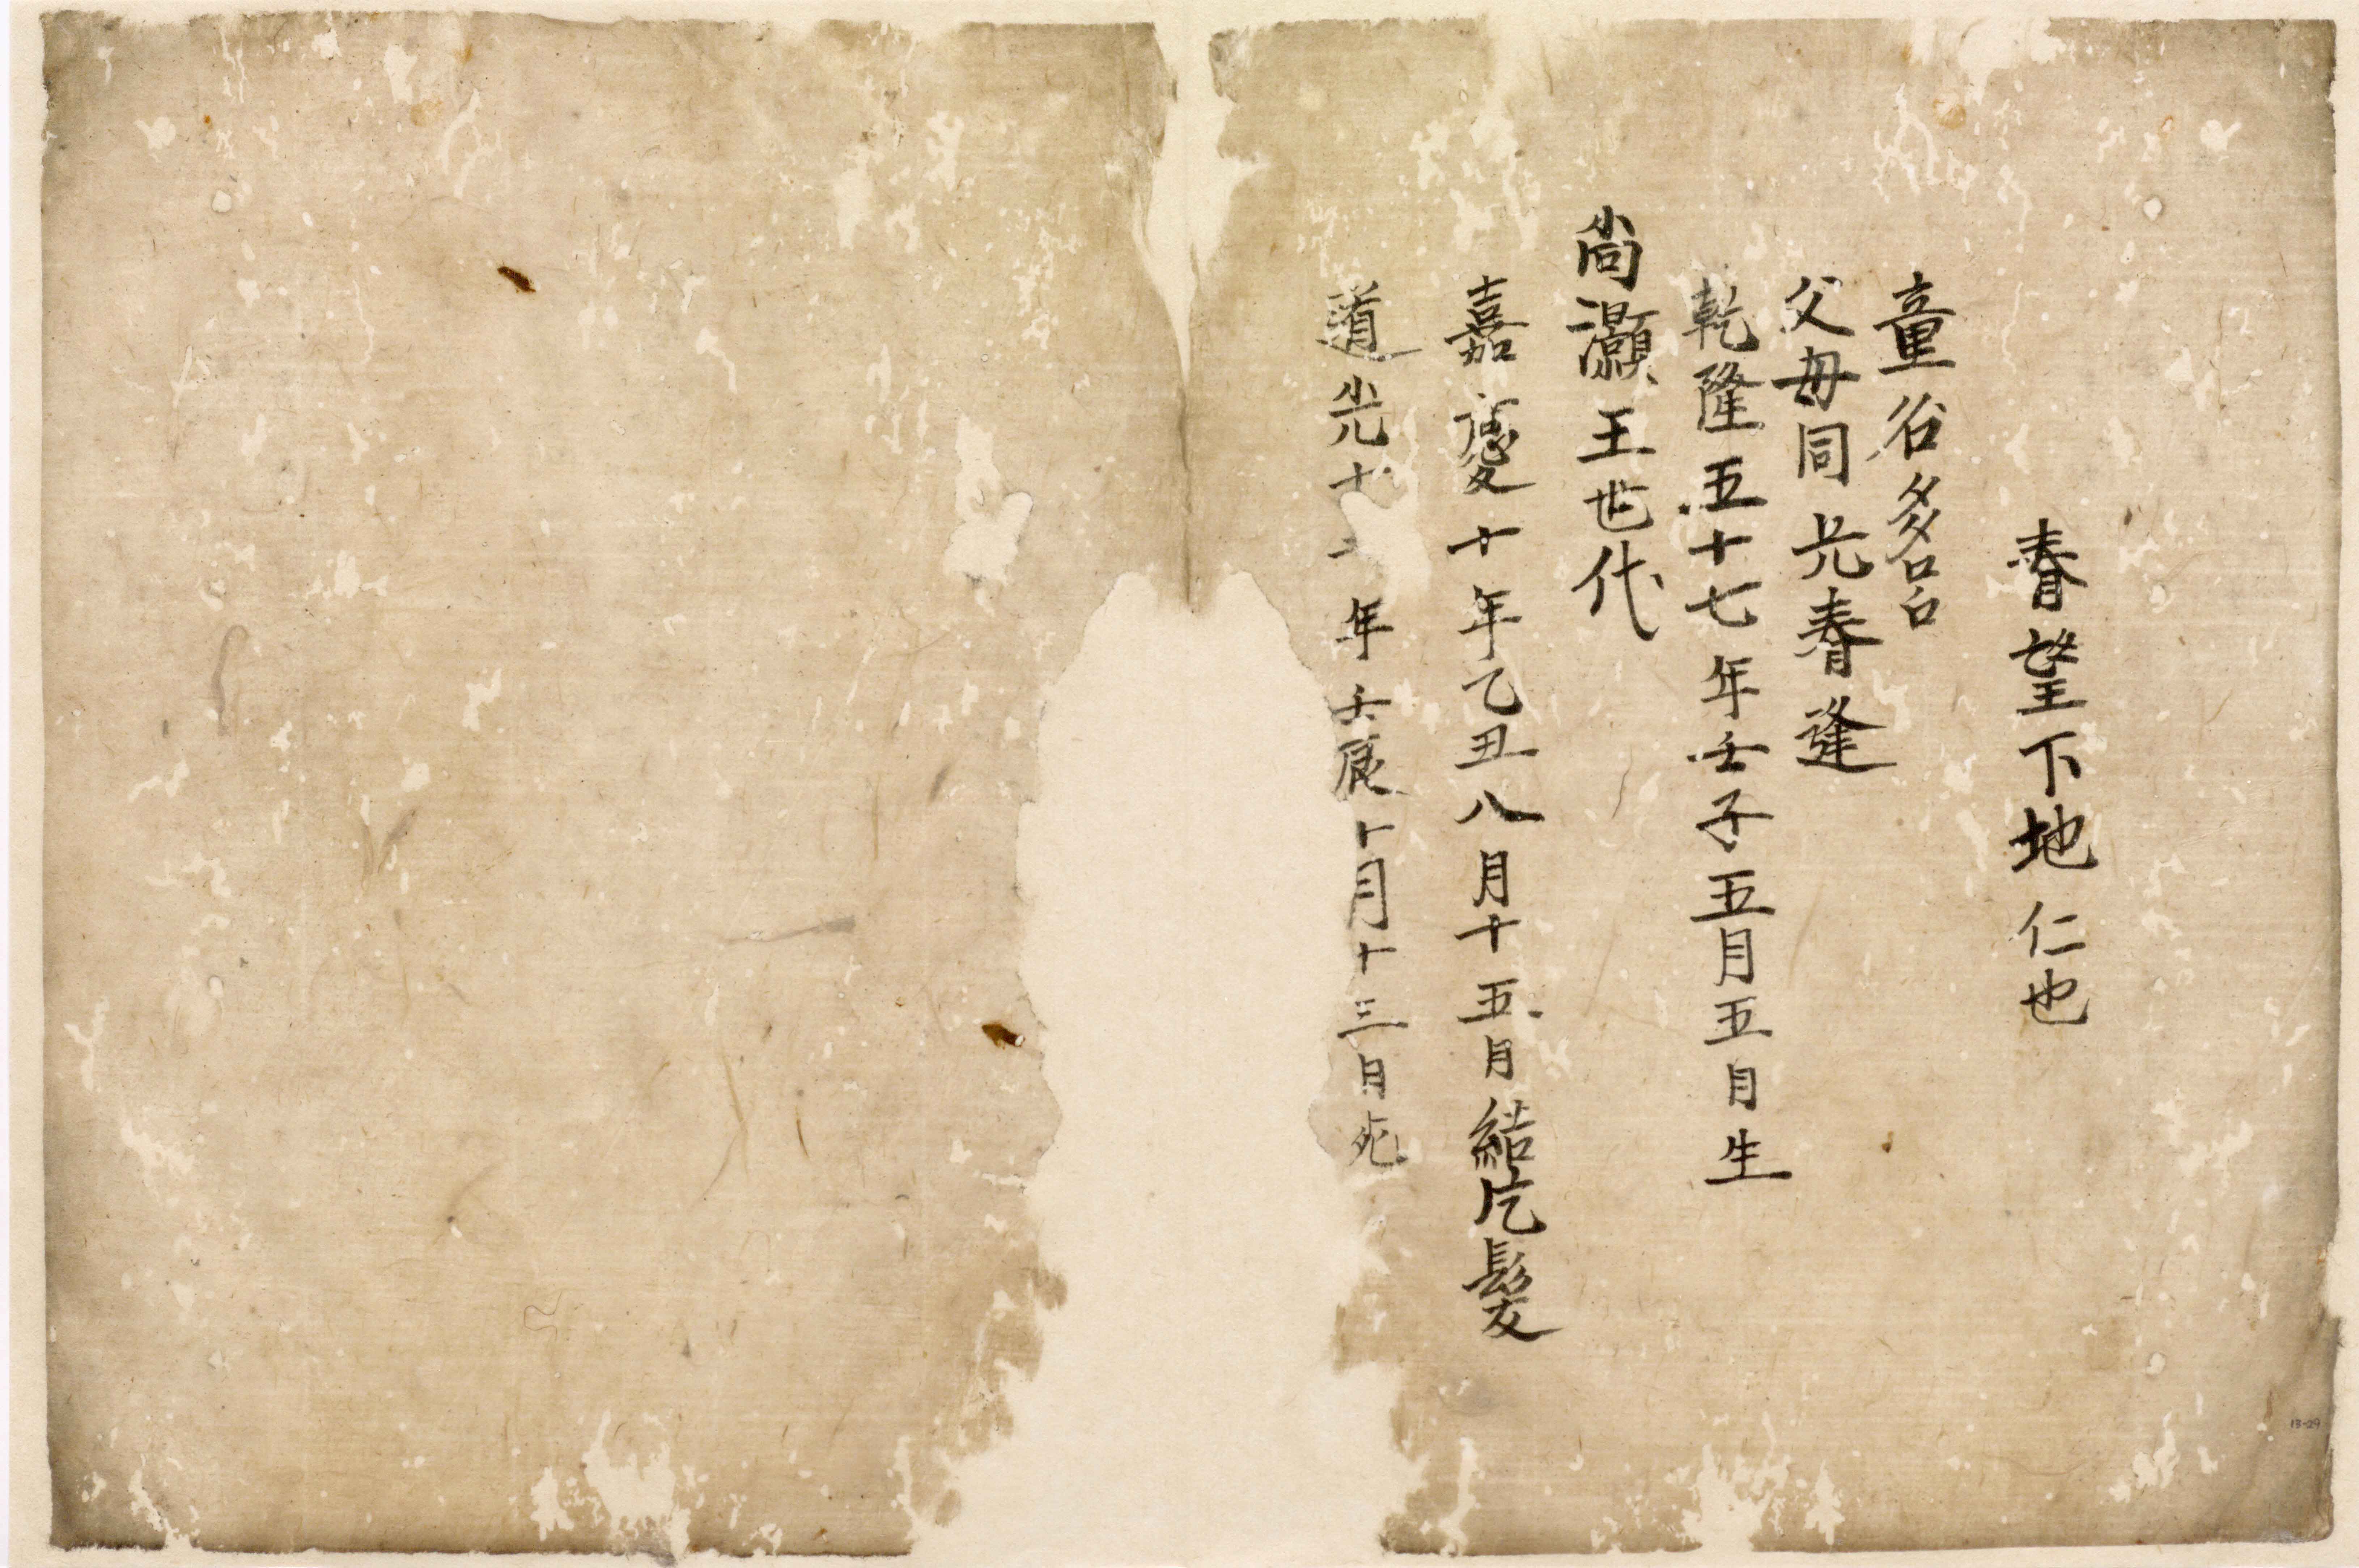 春望下地仁也
童名
父毋同兄春逢
乾隆五十七年壬子五月五日生
尚灝王世代
嘉慶十年乙丑八月十五日結片髮
道光十 年壬辰十月十三日死
13-29